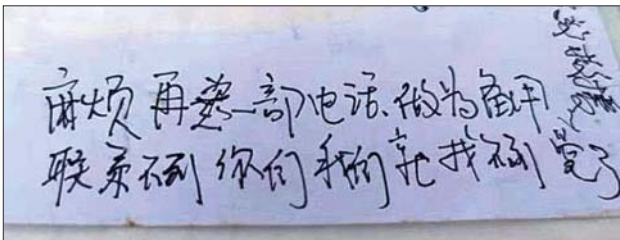 麻烦再 一部电话、做为备用
联系不到你们我们就找不到 了